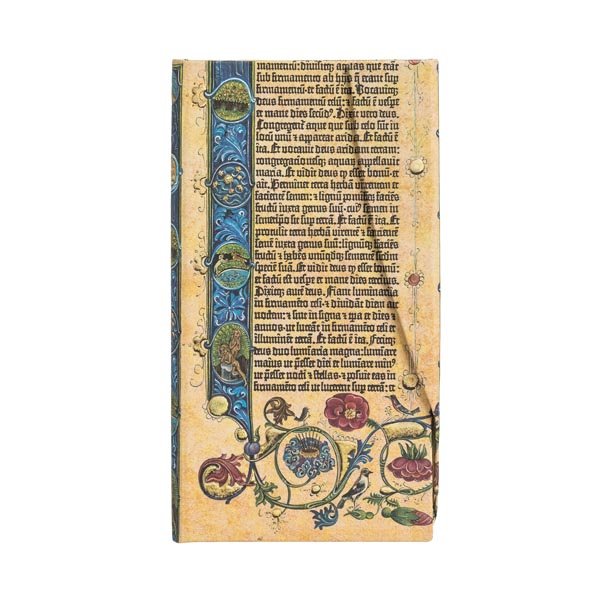 firmamentū: divisitq; aquas que erāt
sub firmamento ab hijs q̄ erant sup
firmamentū: et factū ē ita. Vocavitq;
deus firmamentū celū: & factū ē vespe
et mane dies secūd⁹. Dixit vero deus.
Congregent̄ aque que sub celo sūt in
locū unū & appareat arida. Et factū ē
ita. Et vocavit deus aridam terram:
congregacionesq; aquarū appellavit
maria. Et vidit deus q̄ esset bonū: et
ait. Germinet terra herbā virentem et
facientē semen: & lignū pomiferū faciēs
fructū iuxta genus suū: cui⁹ semen in
semetip̄o sit sup terrā. Et factū ē ita. Et
protulit terra herbā virentē & facientē
semē iuxta genus suū: lignūq; faciēs
fructū & habēs unūqdq; sementē scdm
speciē suā. Et vidit deus q̄ esset bonū:
et factū est vespe et mane dies tercius.
Dixitq; autē deus. Fiant luminaria
in firmamēto celi· & dividāt diem ac
noctem: & sint in signa & tp̄a et dies &
annos· ut luceāt in firmamēto celi et
illuminēt terrā. Et factū ē ita. Fecitq;
deus duo luminaria magna: luminare
maius ut p̄esset diei et luminare min⁹
ut p̄esset nocti & stellas· & posuit eas in
firmamēto celi ut lucerent sup terrā: et